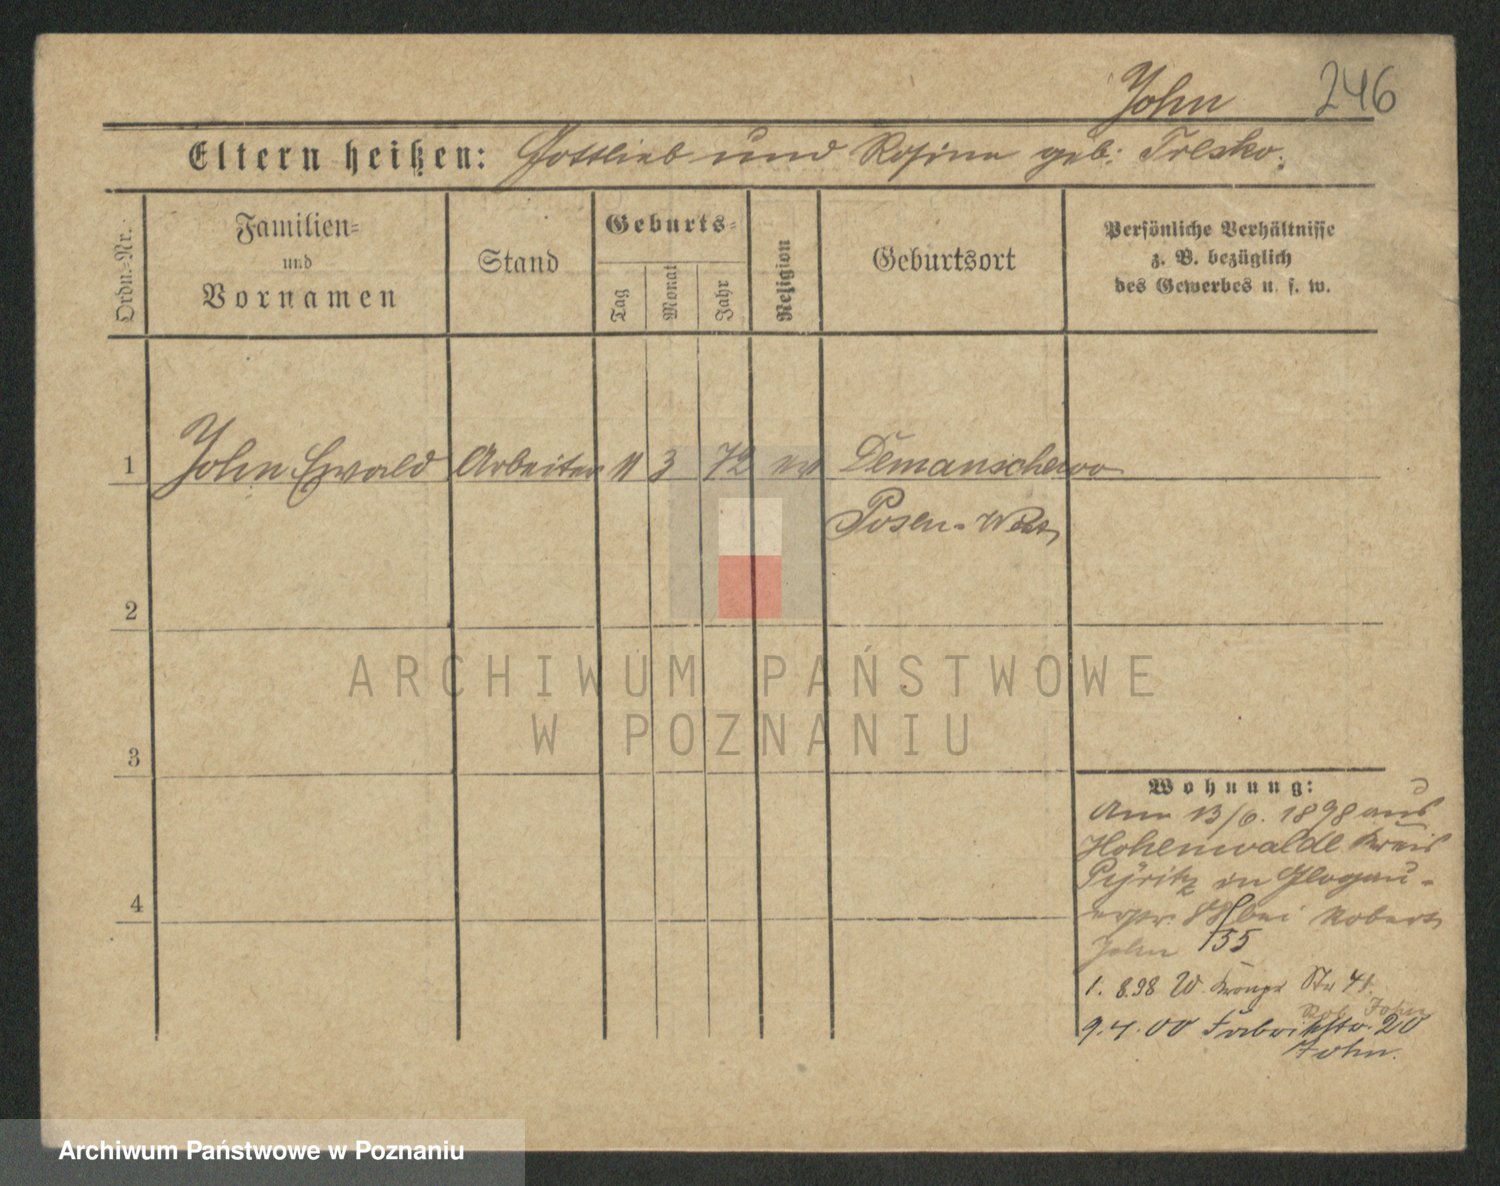 John 246
Eltern heißen: Gottlieb und Rosine geb: Tresko.
Ordn.-Nr.
Familien-
und
Vornamen
Stand
Geburts-
Tag
Monat
Jahr
Religion
Geburtsort
Persönliche Verhältnisse
z. B. bezüglich
des Gewerbes u. s. w.
1 John Ewald Arbeiter 11 3 72 ev Demanschewo
Posen-West
2
ARCHIWUM PAŃSTWOWE
W POZNANIU
3
Wohnung:
Am 13/6. 1898 aus
Hohenwalde Kreis
Pyritz in Glogau-
88 bei Robert
4
John 155
1. 8.98 W. Str 41.
Rob John
9.4.00 Fabrikstr. 20
John.
Archiwum Państwowe w Poznaniu